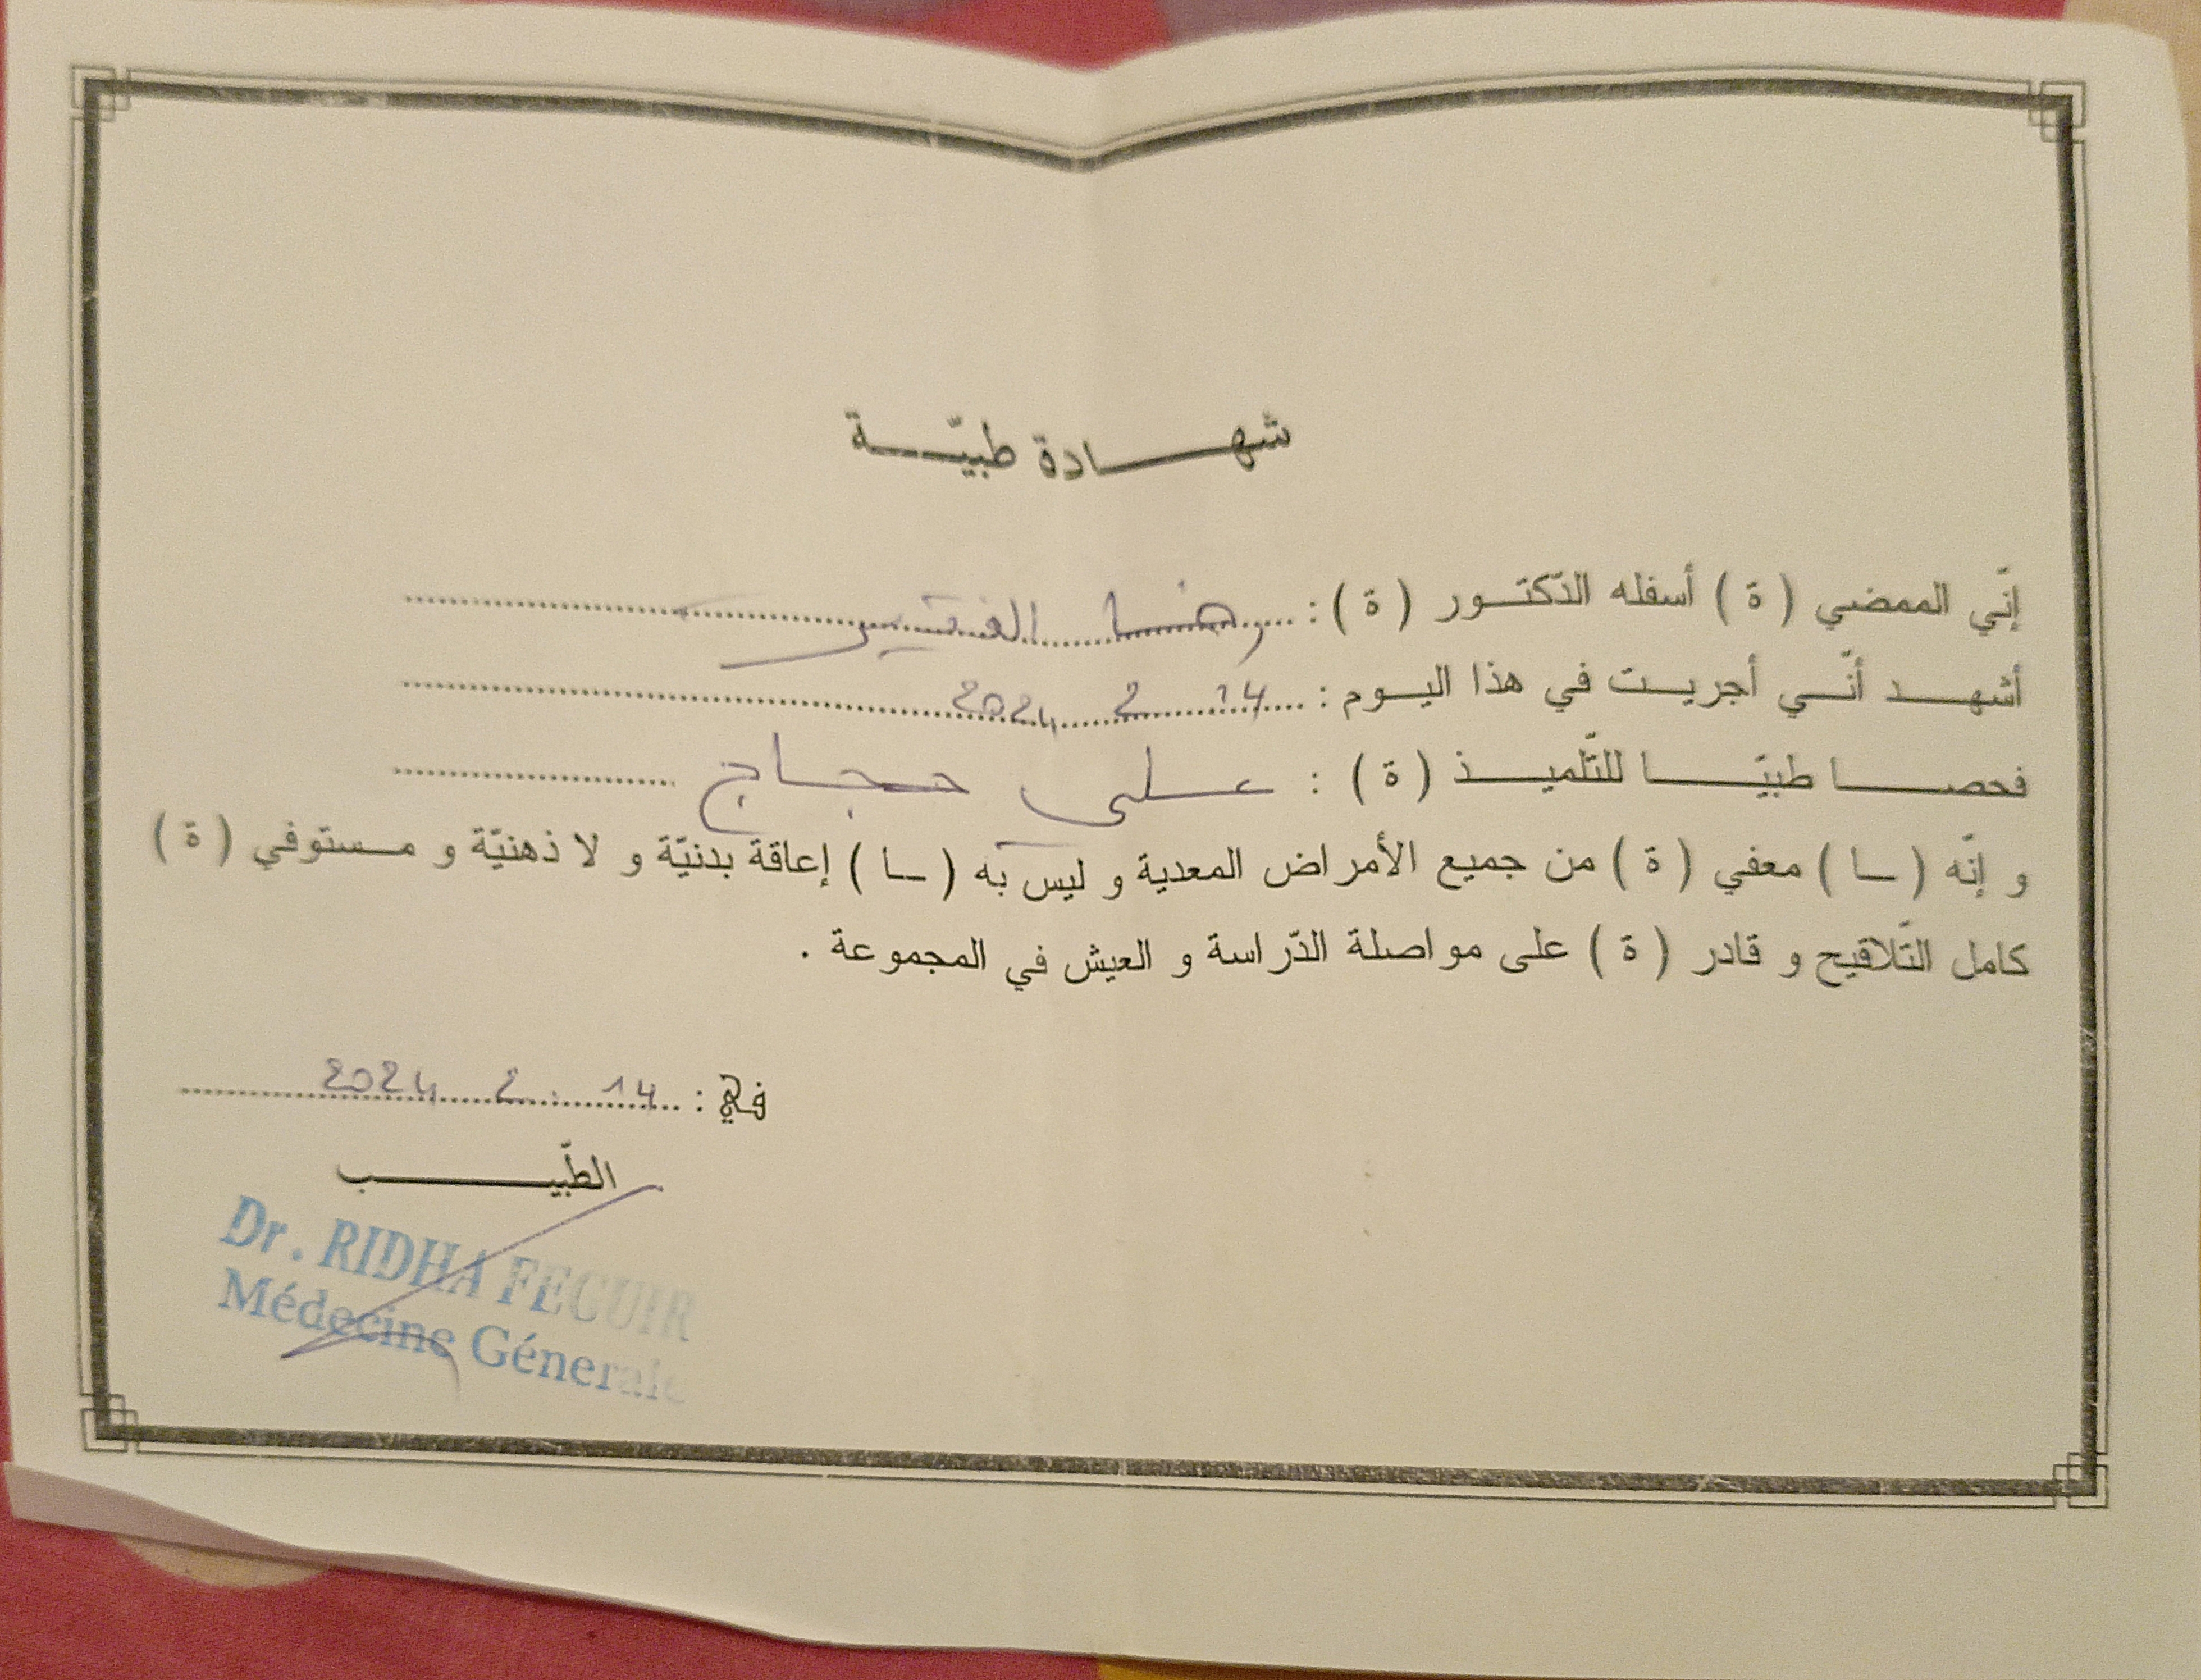 شهادة طبيّة
إنّي الممضي ( ة ) أسفله الدّكتور ( ة ) : رضا الفقير
أشهد أنّي أجريت في هذا اليوم : 14 2 2024
فحصا طبيّا للتّلميذ ( ة ) : علي حجاج
و إنّه ( ـا ) معفي ( ة ) من جميع الأمراض المعدية و ليس به ( ـا ) إعاقة بدنيّة و لا ذهنيّة و مستوفي ( ة )
كامل التّلاقيح و قادر ( ة ) على مواصلة الدّراسة و العيش في المجموعة .
في : 14 2 2024
الطّبيب
Dr. RIDHA FEGUIR
Médecine Génerale